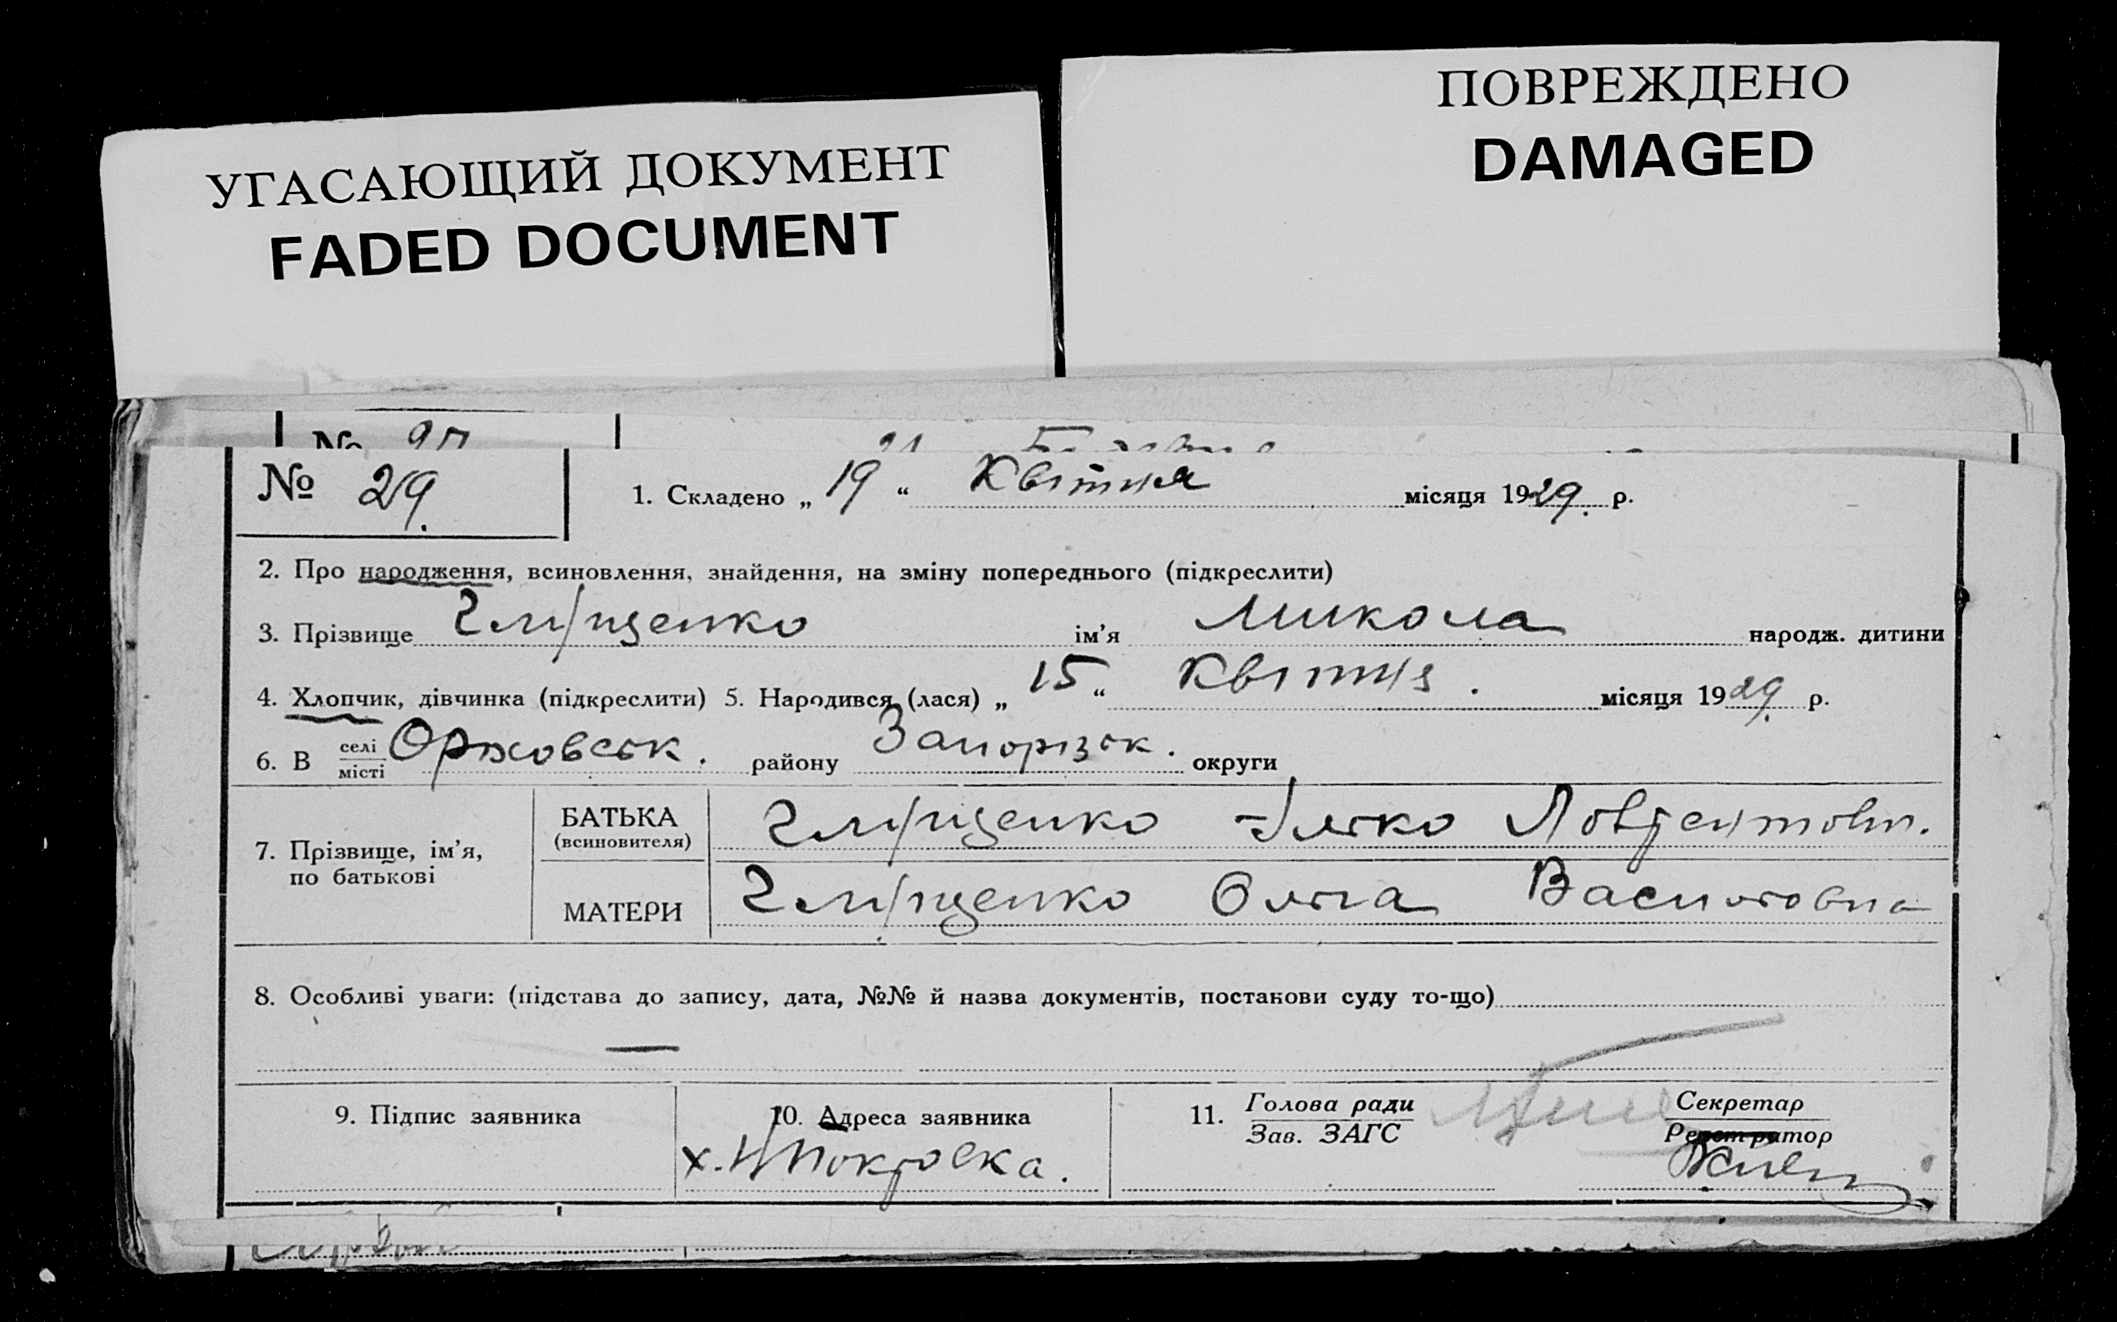 УГАСАЮЩИЙ ДОКУМЕНТ
FADED DOCUMENT
ПОВРЕЖДЕНО
DAMAGED
№ 29. 1. Складено „ 19 “ Квітня місяця 1929. р.
2. Про народження, всиновлення, знайдення, на зміну попереднього (підкреслити)
3. Прізвище Гліущенко ім’я Микола народж. дитини
4. Хлопчик, дівчинка (підкреслити) 5. Народився (лася) „ 15 “ Квітня. місяця 1929. р.
6. В селі місті Оріховськ. району Запорізьк. округи
7. Прізвище, ім’я, по батькові
БАТЬКА (всиновителя)
МАТЕРИ Ольга
8. Особливі уваги: (підстава до запису, дата, №№ й назва документів, постанови суду то-що)
—
9. Підпис заявника 10. Адреса заявника 11. Голова ради Зав. ЗАГС Секретар Реєстратор
х. Покровка.